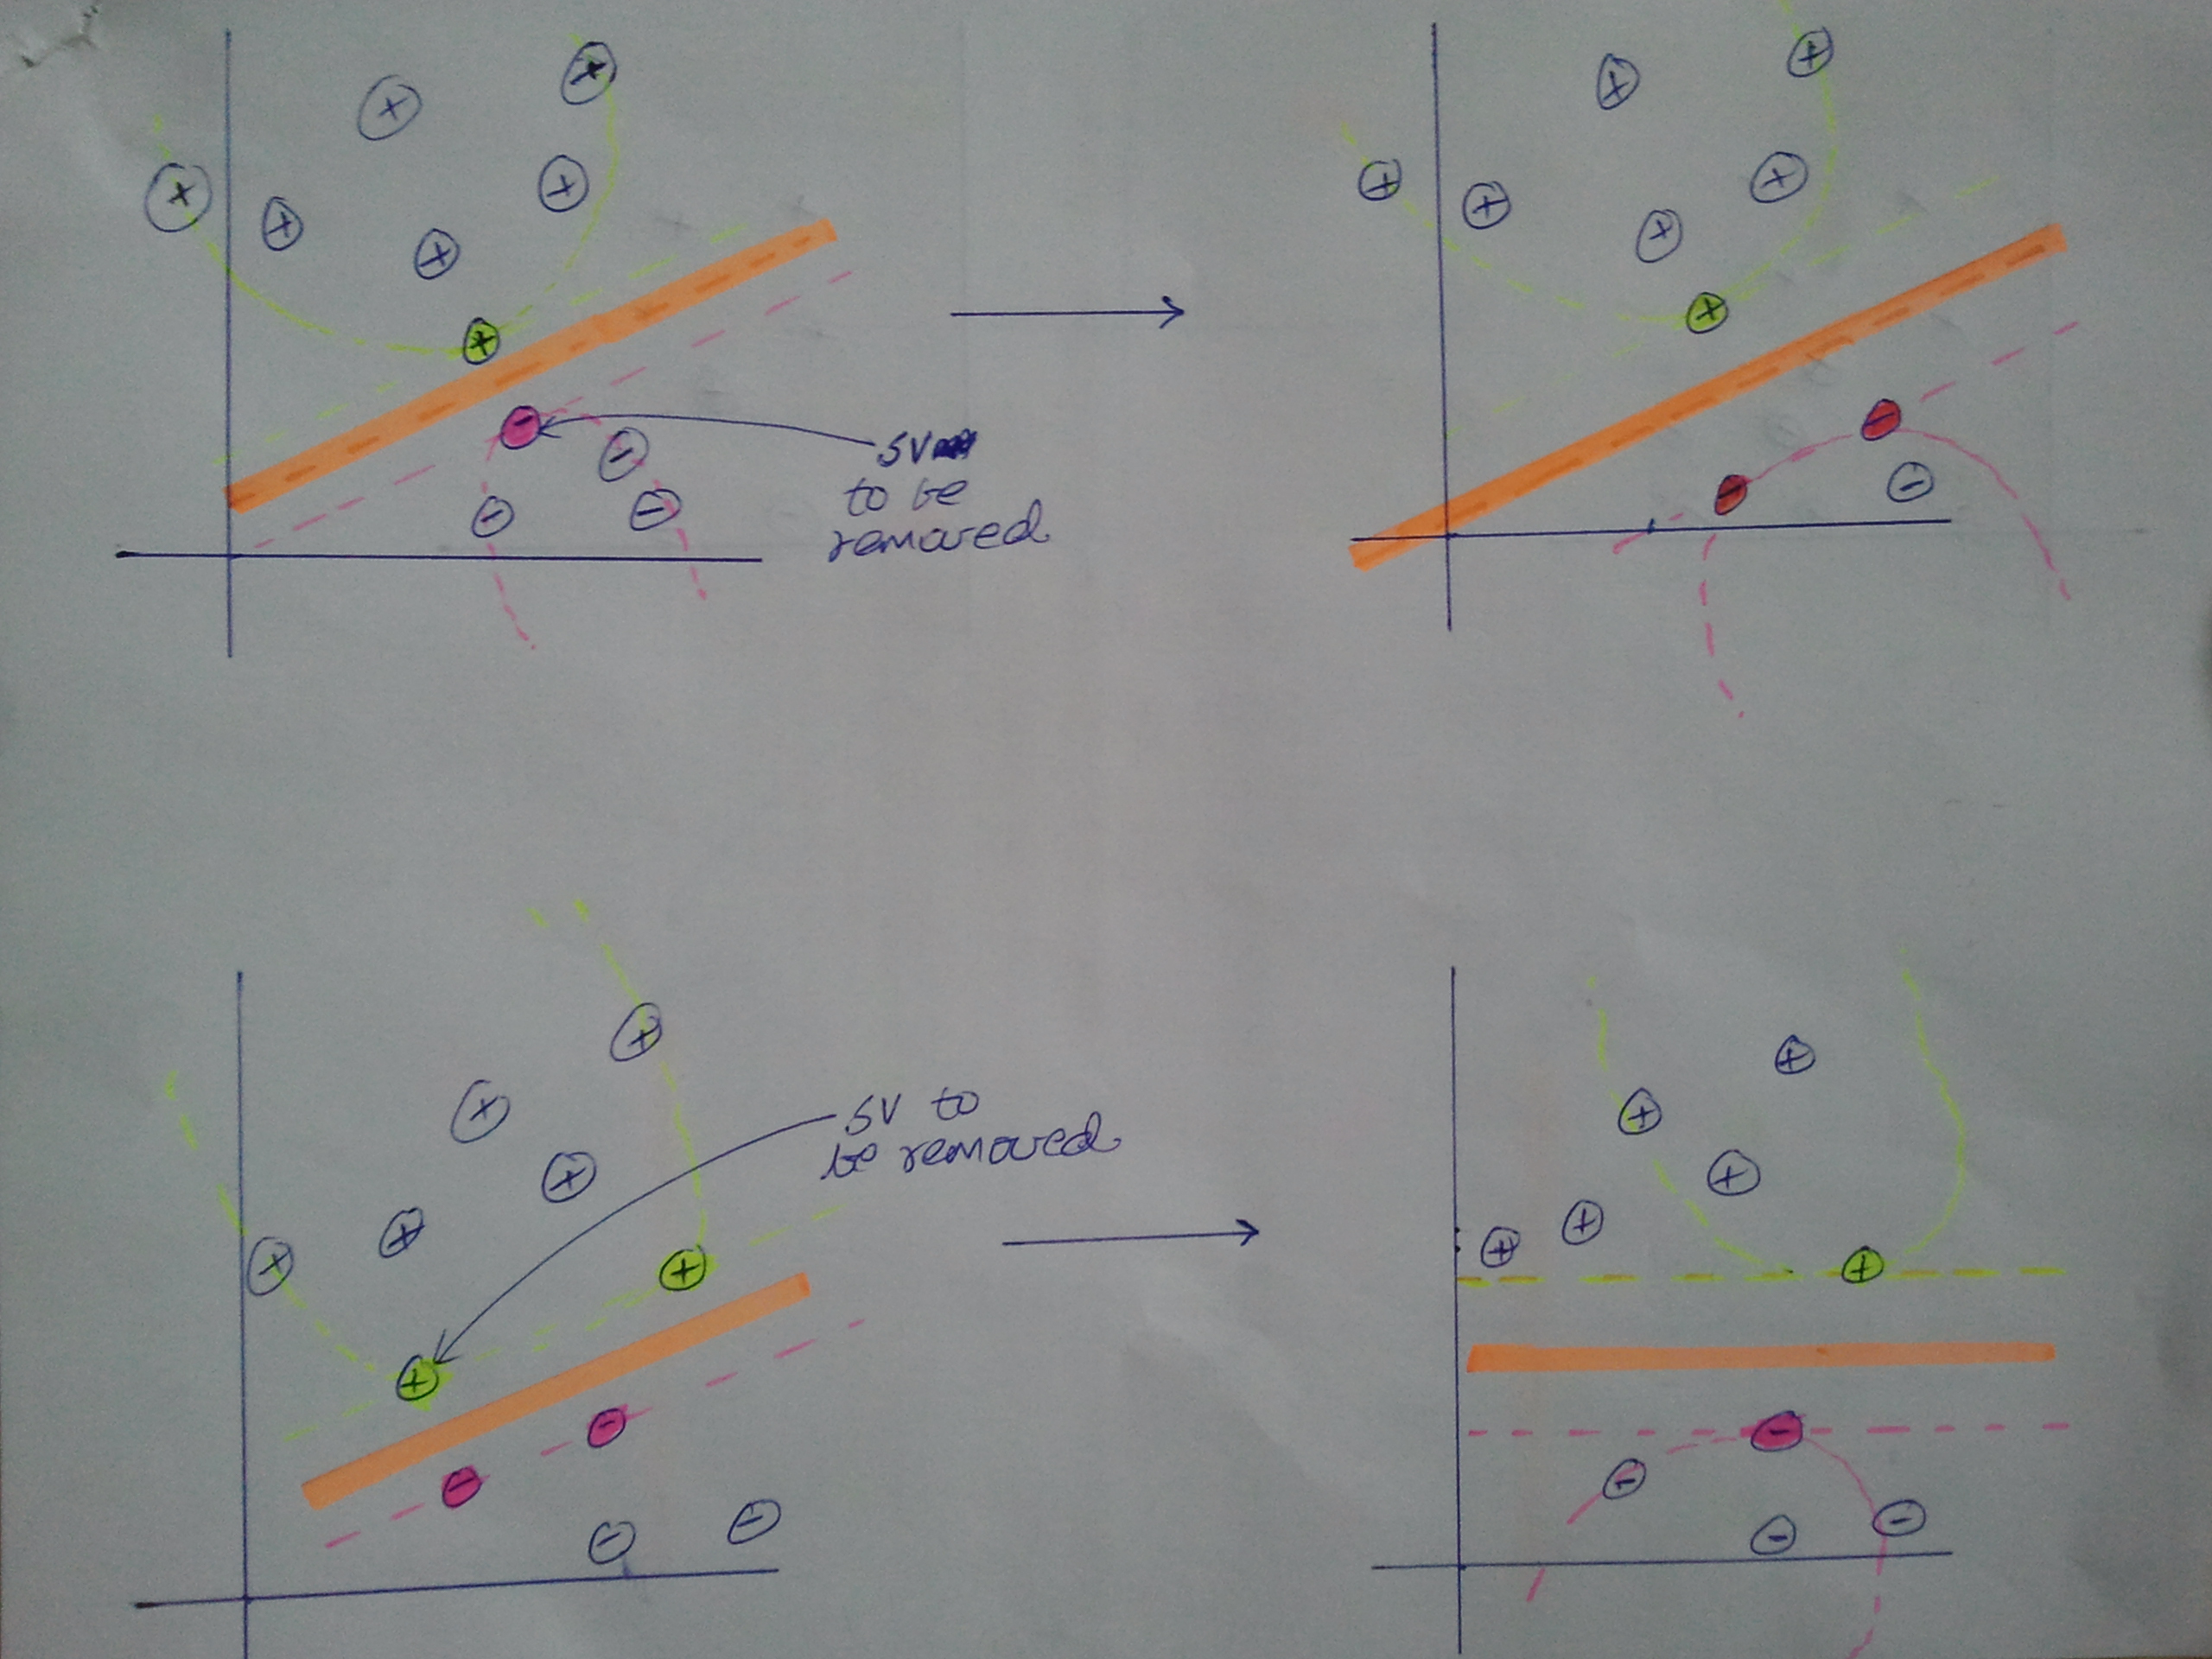 SV
to be
removed
SV to
be removed